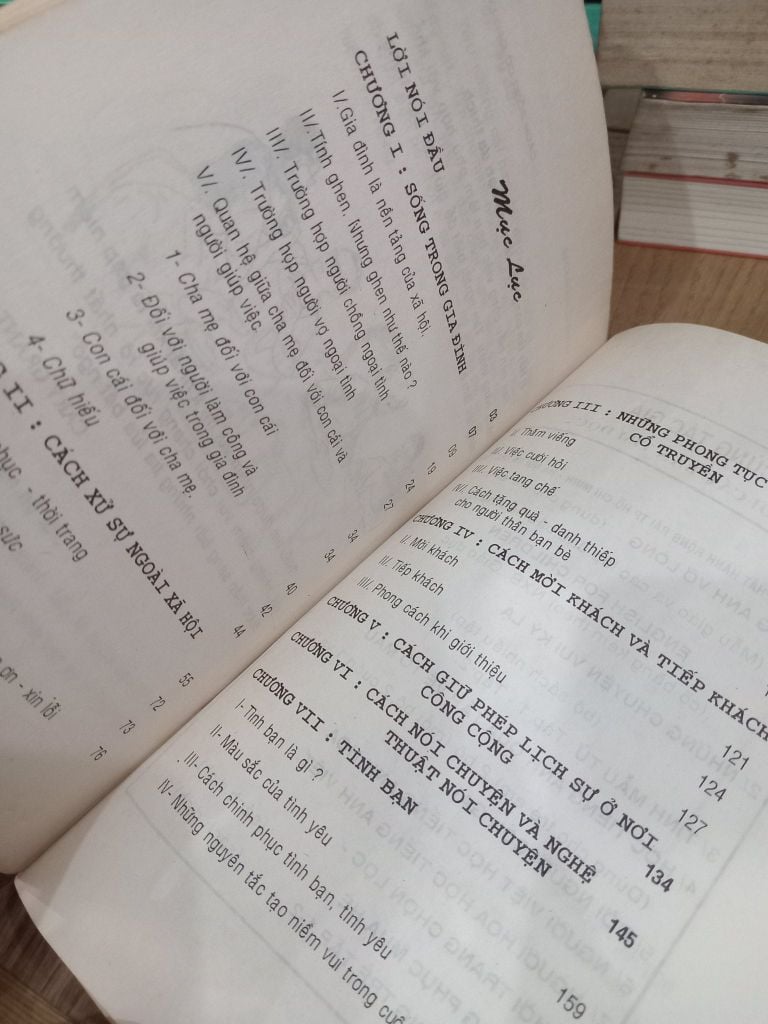 Mục Lục
LỜI NÓI ĐẦU
CHƯƠNG I : SỐNG TRONG GIA ĐÌNH
I/.Gia đình là nền tảng của xã hội.
II/.Tính ghen. Nhưng ghen như thế nào ?
III/. Trường hợp người chồng ngoại tình -
IV/. Trường hợp người vợ ngoại tình
V/. Quan hệ giữa cha mẹ đối với con cái và
người giúp việc.
1- Cha mẹ đối với con cái
2- Đối với người làm công và
giúp việc trong gia đình
3- Con cái đối với cha mẹ.
4- Chữ hiếu
II : CÁCH XỬ SỰ NGOÀI XÃ HỘI
phục - thời trang
sức
ơn - xin lỗi
03
07
09
19
24
27
34
34
40
42
44
55
72
73
76
CHƯƠNG III : NHỮNG PHONG TỤC
CỔ TRUYỀN
I/. Thăm viếng
II/. Việc cưới hỏi
III/. Việc tang chế
IV/. Cách tặng quà - danh thiếp
cho người thân bạn bè
CHƯƠNG IV : CÁCH MỜI KHÁCH VÀ TIẾP KHÁCH
I/. Mời khách
II/. Tiếp khách
III/. Phong cách khi giới thiệu
CHƯƠNG V : CÁCH GIỮ PHÉP LỊCH SỰ Ở NƠI
CÔNG CỘNG
CHƯƠNG VI : CÁCH NÓI CHUYỆN VÀ NGHỆ
THUẬT NÓI CHUYỆN
CHƯƠNG VII : TÌNH BẠN
I- Tình bạn là gì ?
II- Màu sắc của tình yêu
III- Cách chinh phục tình bạn, tình yêu
IV- Những nguyên tắc tạo niềm vui trong
121
124
127
134
145
159